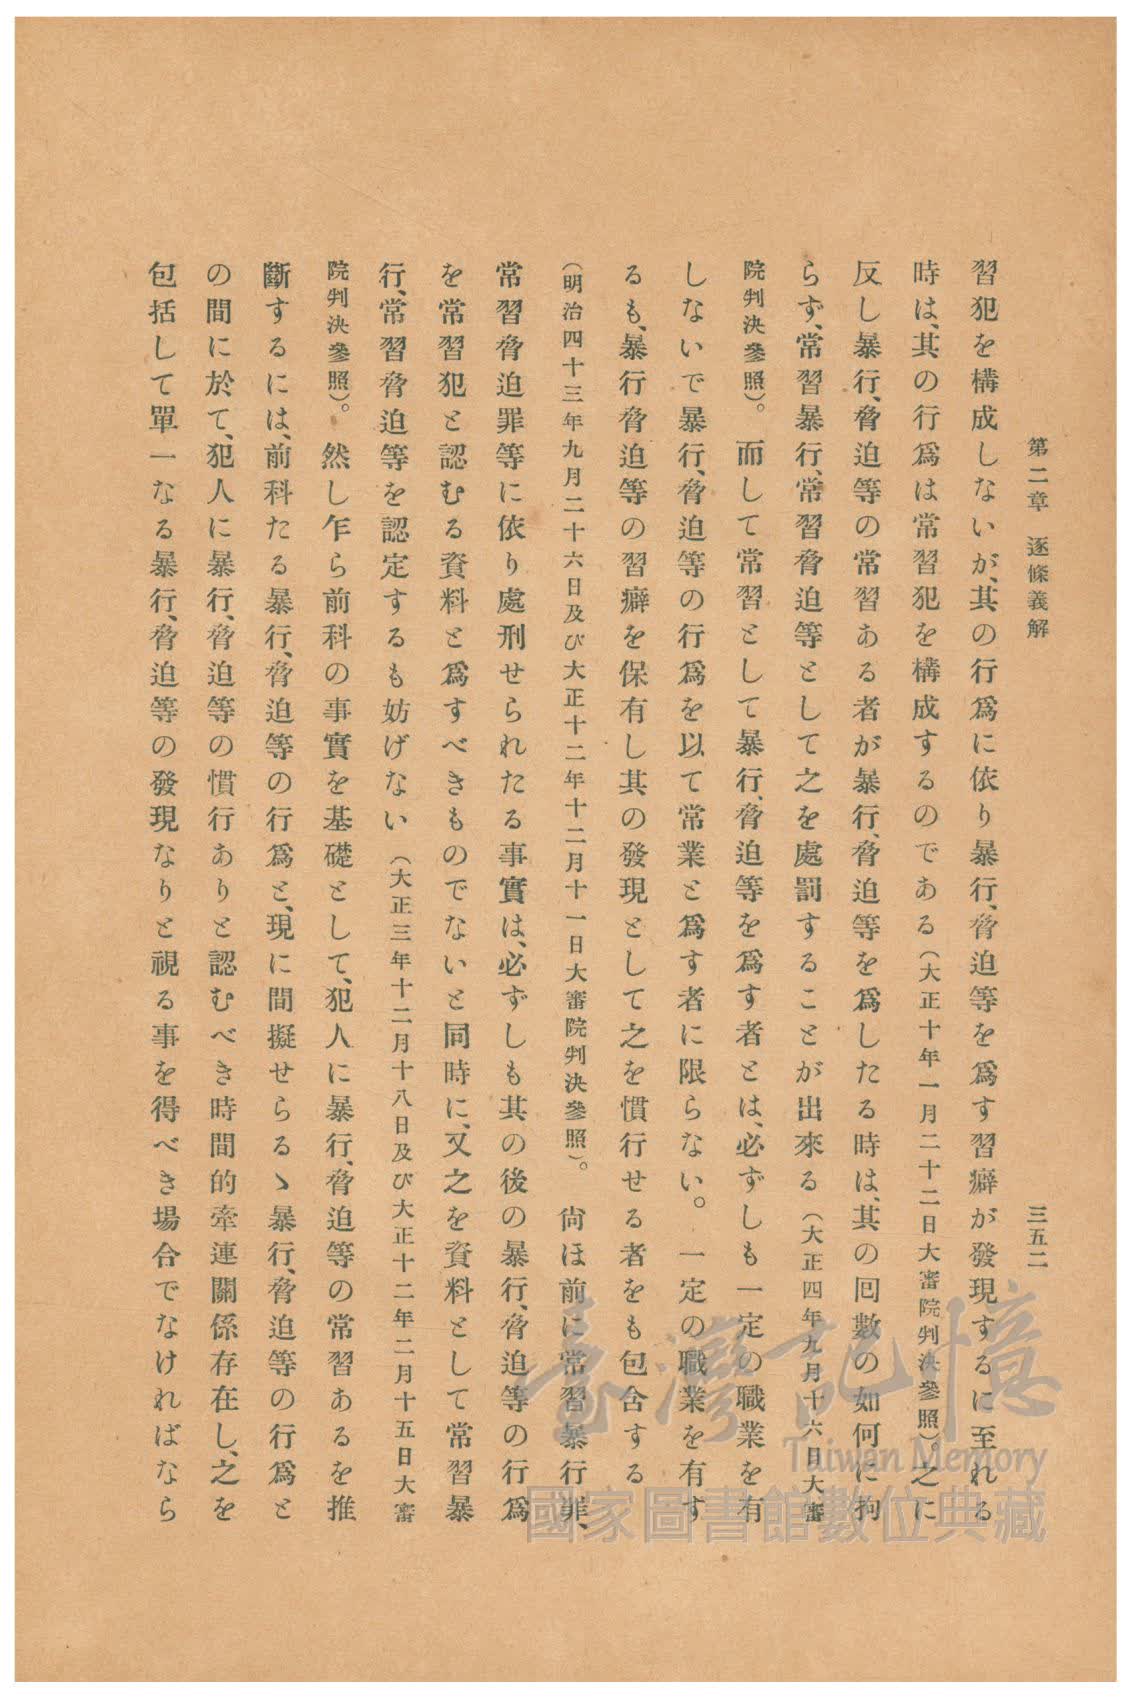 第二章　逐條義解　三五二
習犯を構成しないが、其の行爲に依り暴行、脅迫等を爲す習癖が發現するに至れる
時は、其の行爲は常習犯を構成するのである（大正十年一月二十二日大審院判決參照）。之に
反し暴行、脅迫等の常習ある者が暴行、脅迫等を爲したる時は、其の囘數の如何に拘
らず、常習暴行、常習脅迫等として之を處罰することが出來る（大正四年九月十六日大審
院判決參照）。　而して常習として暴行、脅迫等を爲す者とは、必ずしも一定の職業を有
しないで暴行、脅迫等の行爲を以て常業と爲す者に限らない。一定の職業を有す
るも、暴行脅迫等の習癖を保有し其の發現として之を慣行せる者をも包含する
（明治四十三年九月二十六日及び大正十二年十二月十一日大審院判決參照）。　尙ほ前に常習暴行罪、
常習脅迫罪等に依り處刑せられたる事實は、必ずしも其の後の暴行、脅迫等の行爲
を常習犯と認むる資料と爲すべきものでないと同時に、又之を資料として常習暴
行、常習脅迫等を認定するも妨げない（大正三年十二月十八日及び大正十二年二月十五日大審
院判決參照）。　然し乍ら前科の事實を基礎として、犯人に暴行、脅迫等の常習あるを推
斷するには、前科たる暴行、脅迫等の行爲と、現に間擬せらるゝ暴行、脅迫等の行爲と
の間に於て、犯人に暴行、脅迫等の慣行ありと認むべき時間的牽連關係存在し、之を
包括して單一なる暴行、脅迫等の發現なりと視る事を得べき場合でなければなら
臺灣記憶
Taiwan Memory
國家圖書館數位典藏